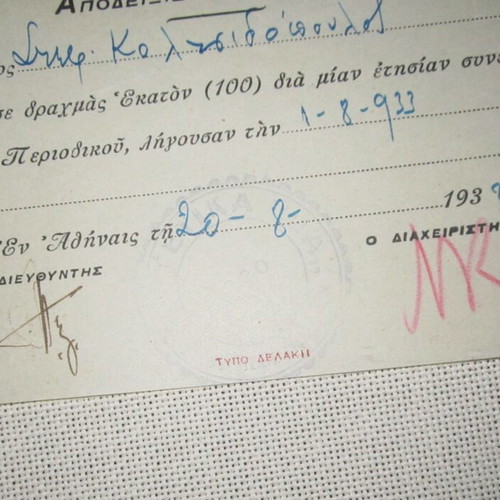 ΑΠΟΔΕΙΞΙΣ
ος Σπυρ. Καλτσιδόπουλος
σε δραχμὰς Ἑκατὸν (100) διὰ μίαν ἐτησίαν συν
Περιοδικοῦ, λήγουσαν τὴν 1-8-933
Ἐν Ἀθήναις τῇ 20-8- 193
ΔΙΕΥΘΥΝΤΗΣ Ο ΔΙΑΧΕΙΡΙΣΤΗ
ΤΥΠΟ ΔΕΛΑΚΗ